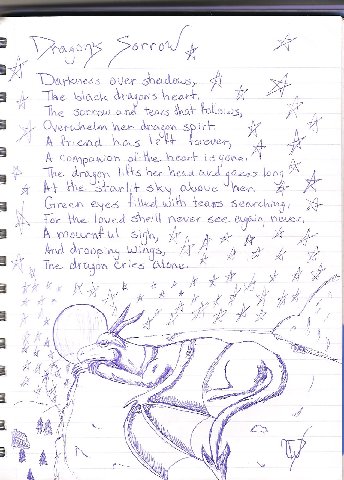 Dragon's Sorrow
Darkness over shadows,
The black dragon's heart.
The sorrow and tears that follows,
Overwhelm her dragon spirt.
A friend has left forever,
A companion of the heart is gone.
The dragon lifts her head and gazes long
At the starlit sky above her.
Green eyes filled with tears searching,
For the loved she'll never see again, never,
A mournful sigh,
And drooping wings,
The dragon cries alone.